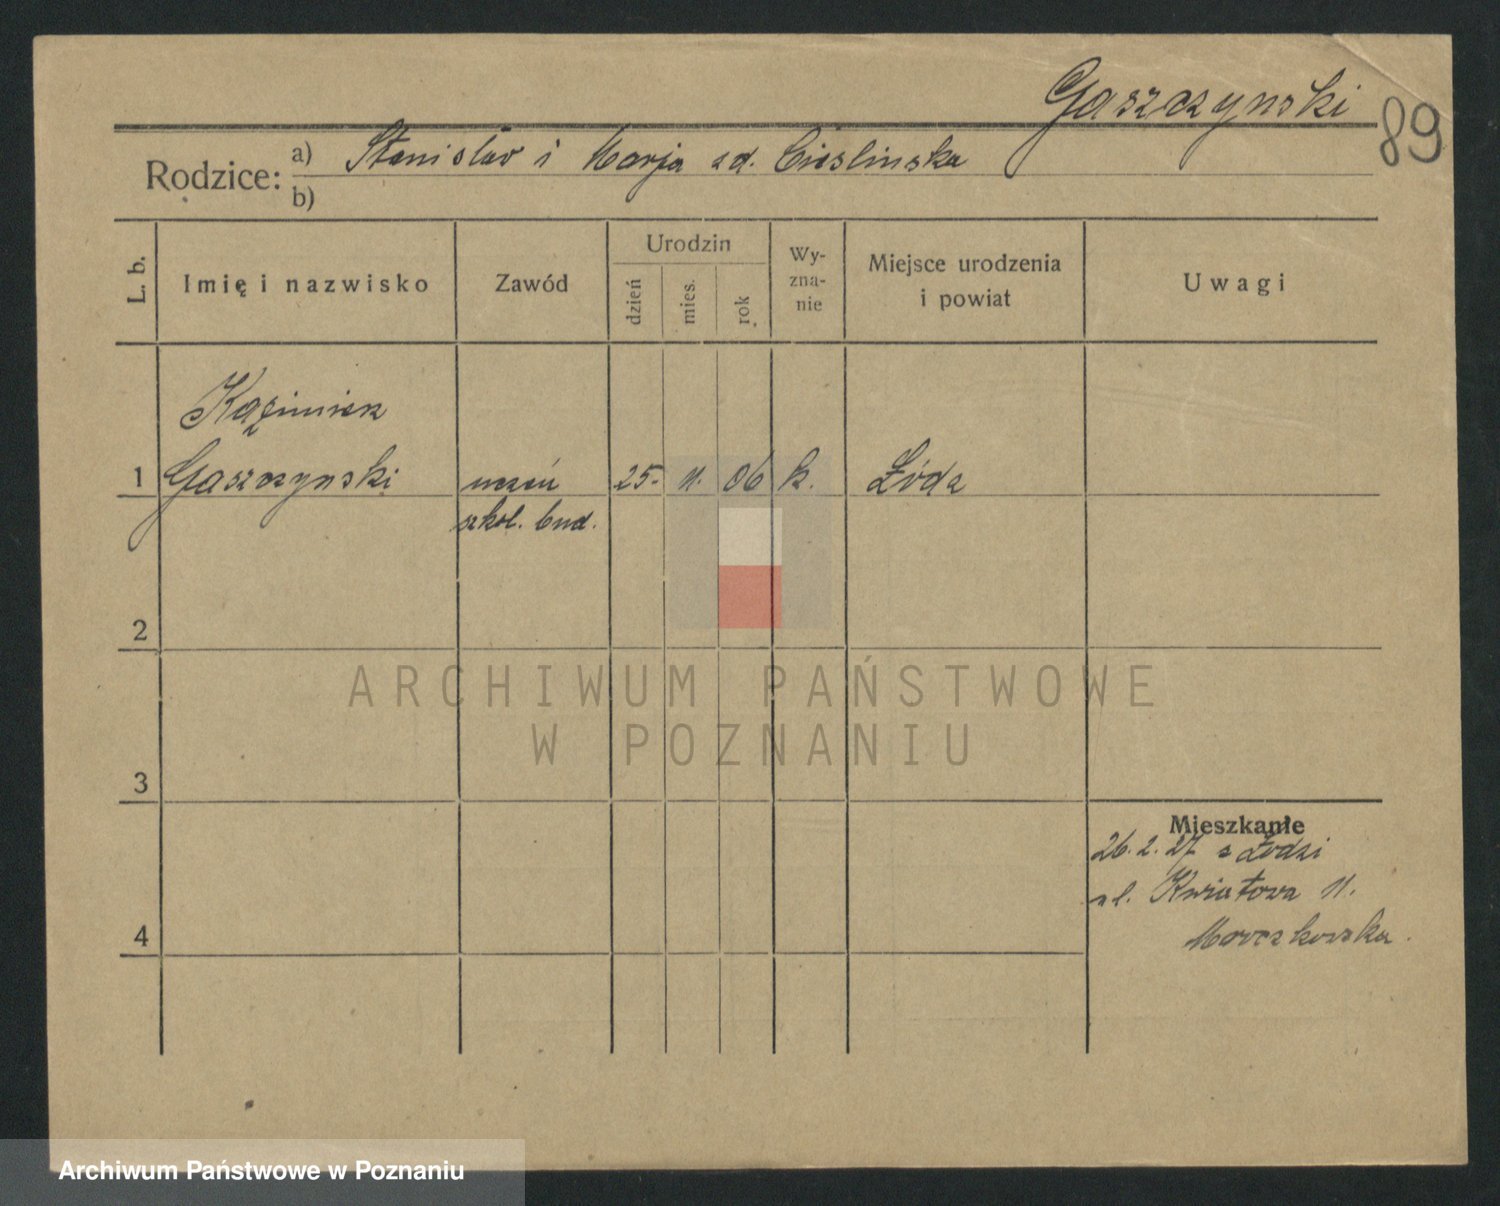 Gaszczynski
89
Rodzice: a) Stanislav i Marja zd. Cieslinska
b)
L. b. Imię i nazwisko Zawód Urodzin dzień mies. rok Wyznanie Miejsce urodzenia i powiat Uwagi
Kazimierz
1 Gaszczynski uczeń 25. 11. 06 k. Łódz
szkol. bud.
2
ARCHIWUM PAŃSTWOWE
W POZNANIU
3
Mieszkanie
26. 2. 27 z Łodzi
ul. Kwiatowa 11.
4
Archiwum Państwowe w Poznaniu